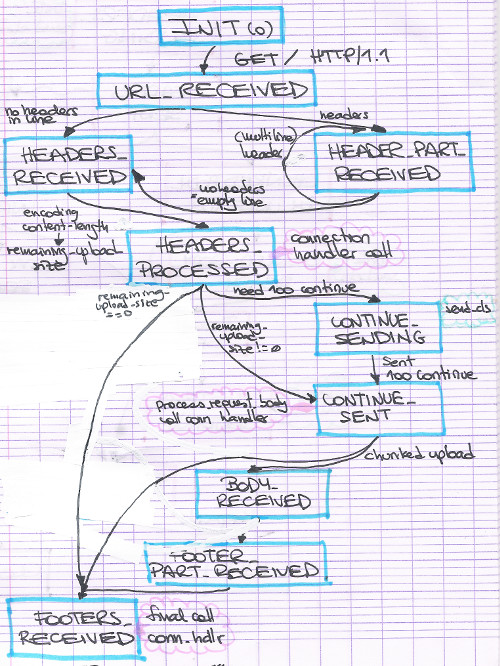 INIT (0)
GET / HTTP/1.1
URL_RECEIVED
no headers
in line
headers
HEADERS_
RECEIVED
(multiline)
header
HEADER_PART_
RECEIVED
no headers
empty line
encoding
content-length
remaining_upload_
size
HEADERS_
PROCESSED
connection
handler call
remaining_
upload_size
==0
need 100 continue
remaining_
upload_
size != 0
CONTINUE_
SENDING
send_ds
sent
100 continue
process_request_body
call conn handler
CONTINUE_
SENT
chunked upload
BODY_
RECEIVED
FOOTER_
PART_RECEIVED
FOOTERS_
RECEIVED
final call
conn. hdlr